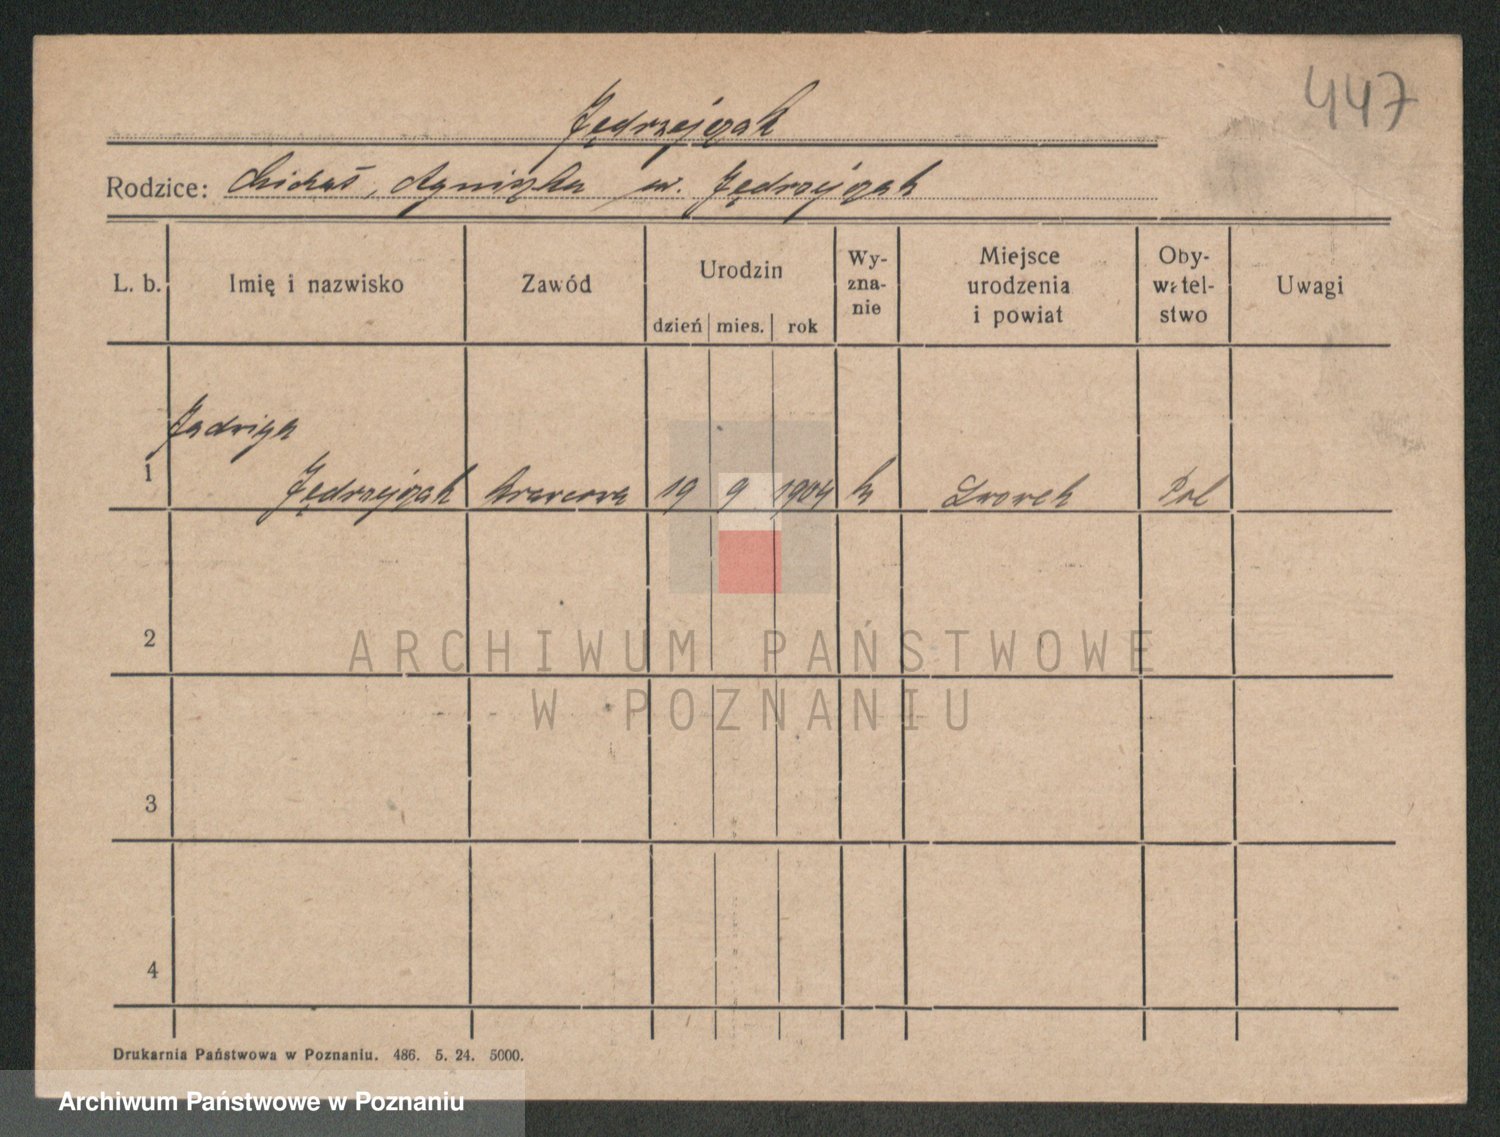 447
Jędrzejczak
Rodzice: Michał, Agnieszka ur. Jędrzejczak
L. b. Imię i nazwisko Zawód Urodzin dzień mies. rok Wy-zna-nie Miejsce urodzenia i powiat Oby-watel-stwo Uwagi
Jadwiga
1 Jędrzejczak krawcowa 19 9 1904 k Lwowek Pol
2
3
4
ARCHIWUM PAŃSTWOWE
W POZNANIU
Drukarnia Państwowa w Poznaniu. 486. 5. 24. 5000.
Archiwum Państwowe w Poznaniu